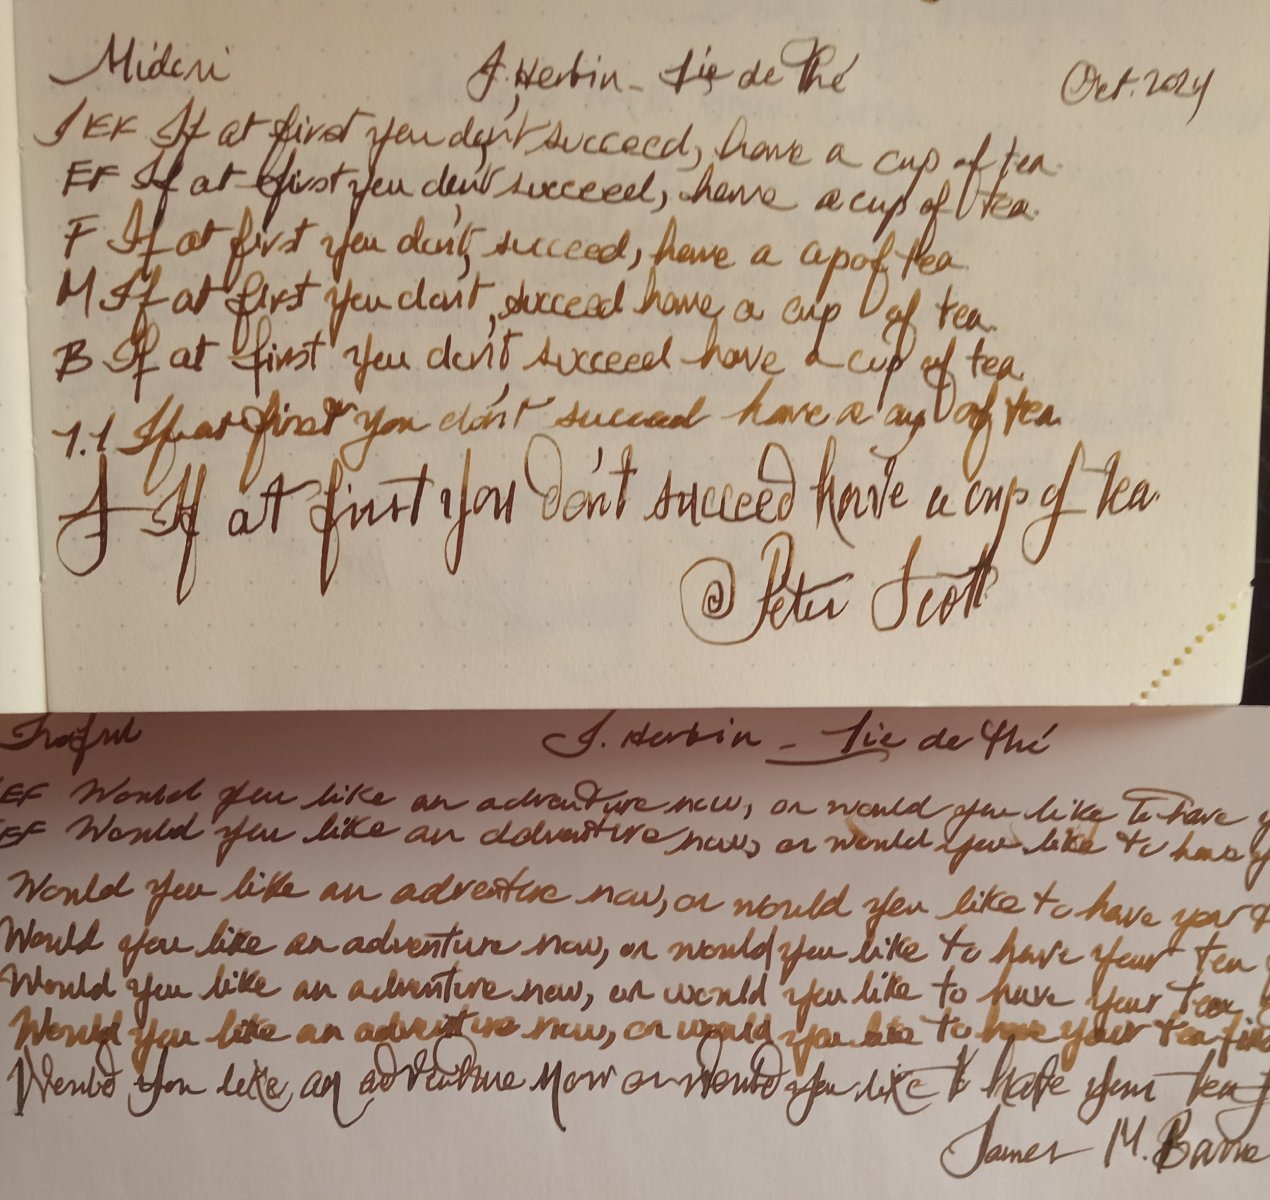 Midori J. Herbin - Lie de Thé Oct. 2024
J EF If at first you don't succeed, have a cup of tea.
EF If at first you don't succeed, have a cup of tea.
F If at first you don't, succeed, have a cup of tea
M If at first you don't, succeed have a cup of tea.
B If at first you don't succeed have a cup of tea.
1.1 If at first you don't succeed have a cup of tea
J If at first you don't succeed have a cup of tea.
@ Peter Scott
J. Herbin - Lie de Thé
EF Would you like an adventure now, or would you like to have y
EF Would you like an adventure now, or would you like to have y
Would you like an adventure now, or would you like to have your
Would you like an adventure now, or would you like to have your tea
Would you like an adventure now, or would you like to have your tea
Would you like an adventure now, or would you like to have your tea fir
Would you like an adventure now or would you like to have your tea f
James M. Barrie